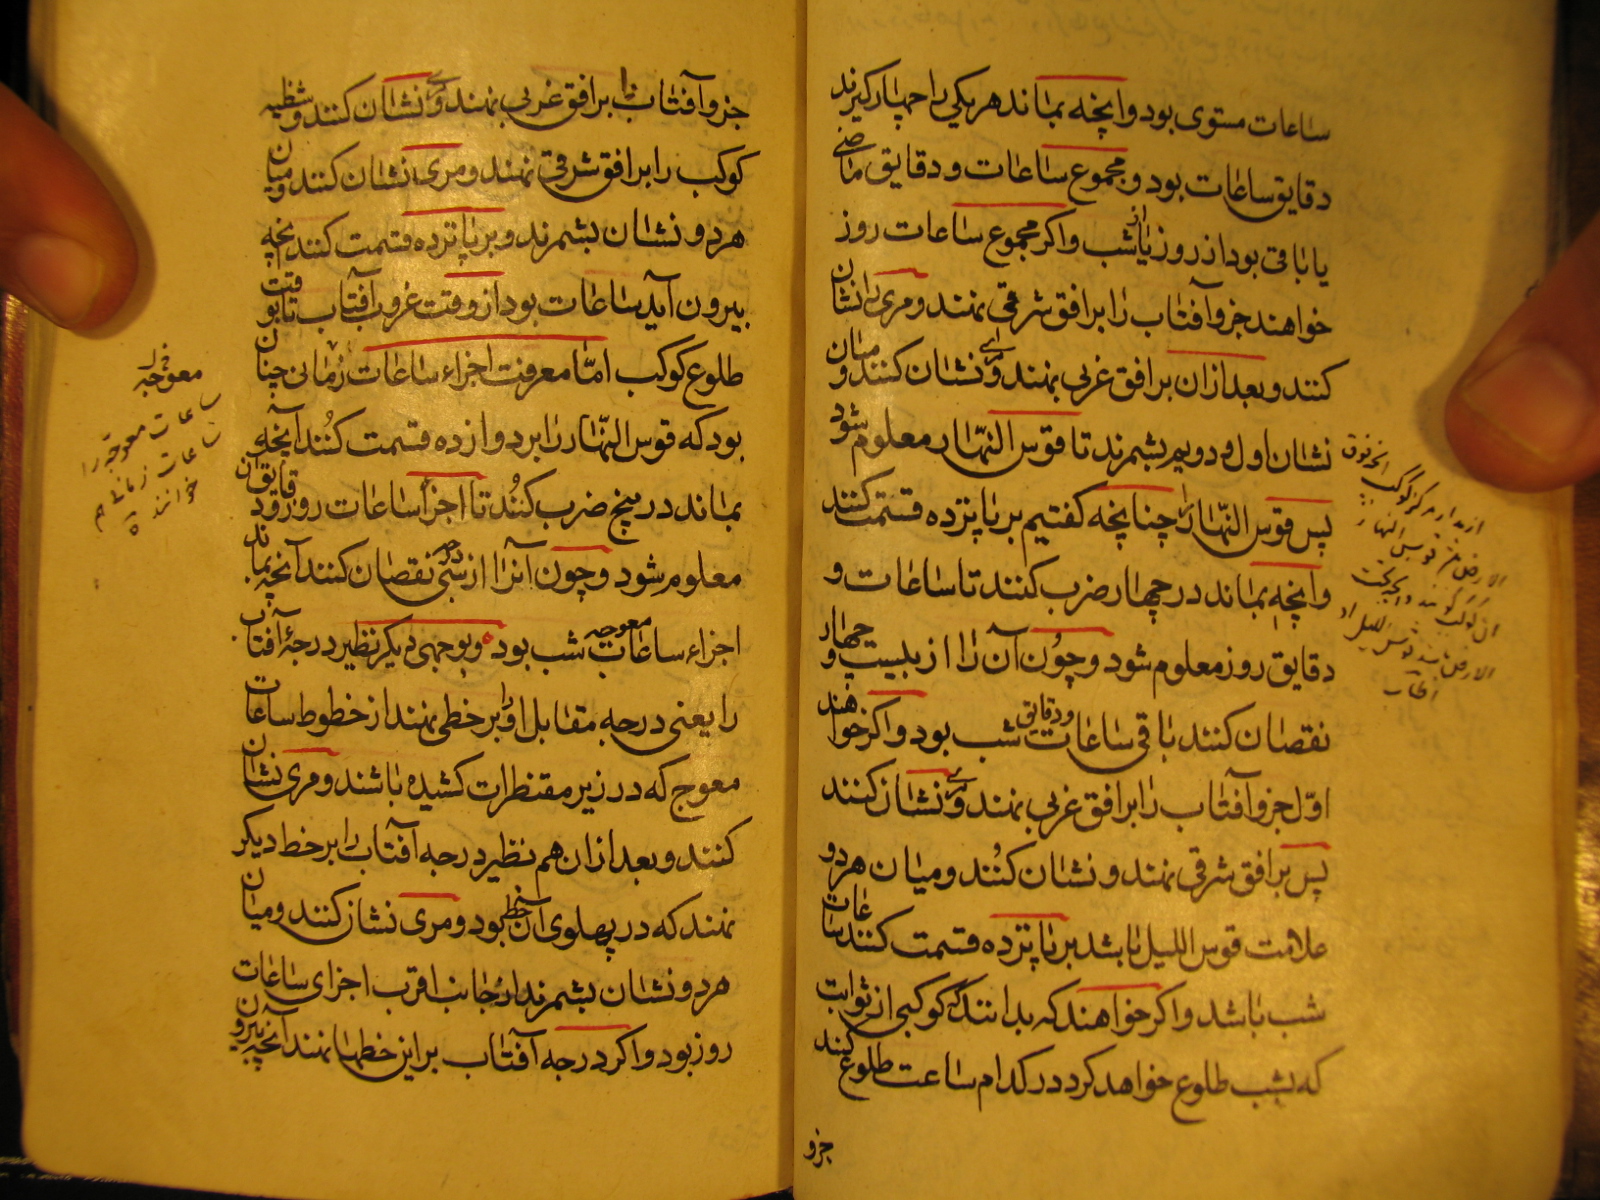 ساعات مستوی بود وانچه بماند هر یکی را چهار گیرند
دقایق ساعات بود و مجموع ساعات و دقایق ماضی
یا باقی بود از روز یا از شب و اگر مجموع ساعات روز
خواهند جزو آفتاب را بر افق شرقی نهند و مری را نشان
کنند و بعد از ان بر افق غربی نهند و مری را نشان کنند و میان
نشان اول و دویم بشمرند تا قوس النهار معلوم شود
پس قوس النهار را چنانچه گفتیم بر پانزده قسمت کنند
وانچه بماند در چهار ضرب کنند تا ساعات و
دقایق روز معلوم شود و چون آن را از بیست و چهار
نقصان کنند باقی ساعات و دقایق شب بود و اگر خواهند
اول جزو آفتاب را بر افق غربی نهند و مری نشان کنند
پس بر افق شرقی نهند و نشان کنند و میان هر دو
علامت قوس اللیل باشد بر پانزده قسمت کنند ساعات
شب باشد و اگر خواهند که بدانند که کوکبی از ثوابت
که بشب طلوع خواهد کرد در کدام ساعت طلوع کند
جزو
جزو آفتاب را بر افق غربی نهند و مری نشان کنند و شظیه
کوکب را بر افق شرقی نهند و مری نشان کنند و میان
هر دو نشان بشمرند و بر پانزده قسمت کنند انچه
بیرون آید ساعات بود از وقت غروب آفتاب تا بوقت
طلوع کوکب اما معرفت اجزاء ساعات زمانی چنان
بود که قوس النهار را بر دوازده قسمت کنند آنچه
بماند در پنج ضرب کنند تا اجزا ساعات روز و دقایق ان
معلوم شود و چون آنرا از سی درجه نقصان کنند آنچه بماند
اجزاء ساعات معوجه شب بود و بوجهی دیگر نظیر درجهٔ آفتاب
را یعنی درجه مقابل او را بر خطی نهند از خطوط ساعات
معوج که در زیر مقنطرات کشیده باشند و مری نشان
کنند و بعد از ان هم نظیر درجه آفتاب را بر خط دیگر
نهند که در پهلوی آن خط بود و مری نشان کنند و میان
هر دو نشان بشمرند از جانب اقرب اجزای ساعات
روز بود و اگر درجه آفتاب بر این خطها نهند آنچه بیرون
معوجه
ساعات معوجه را
ساعات زمانی هم
خوانند